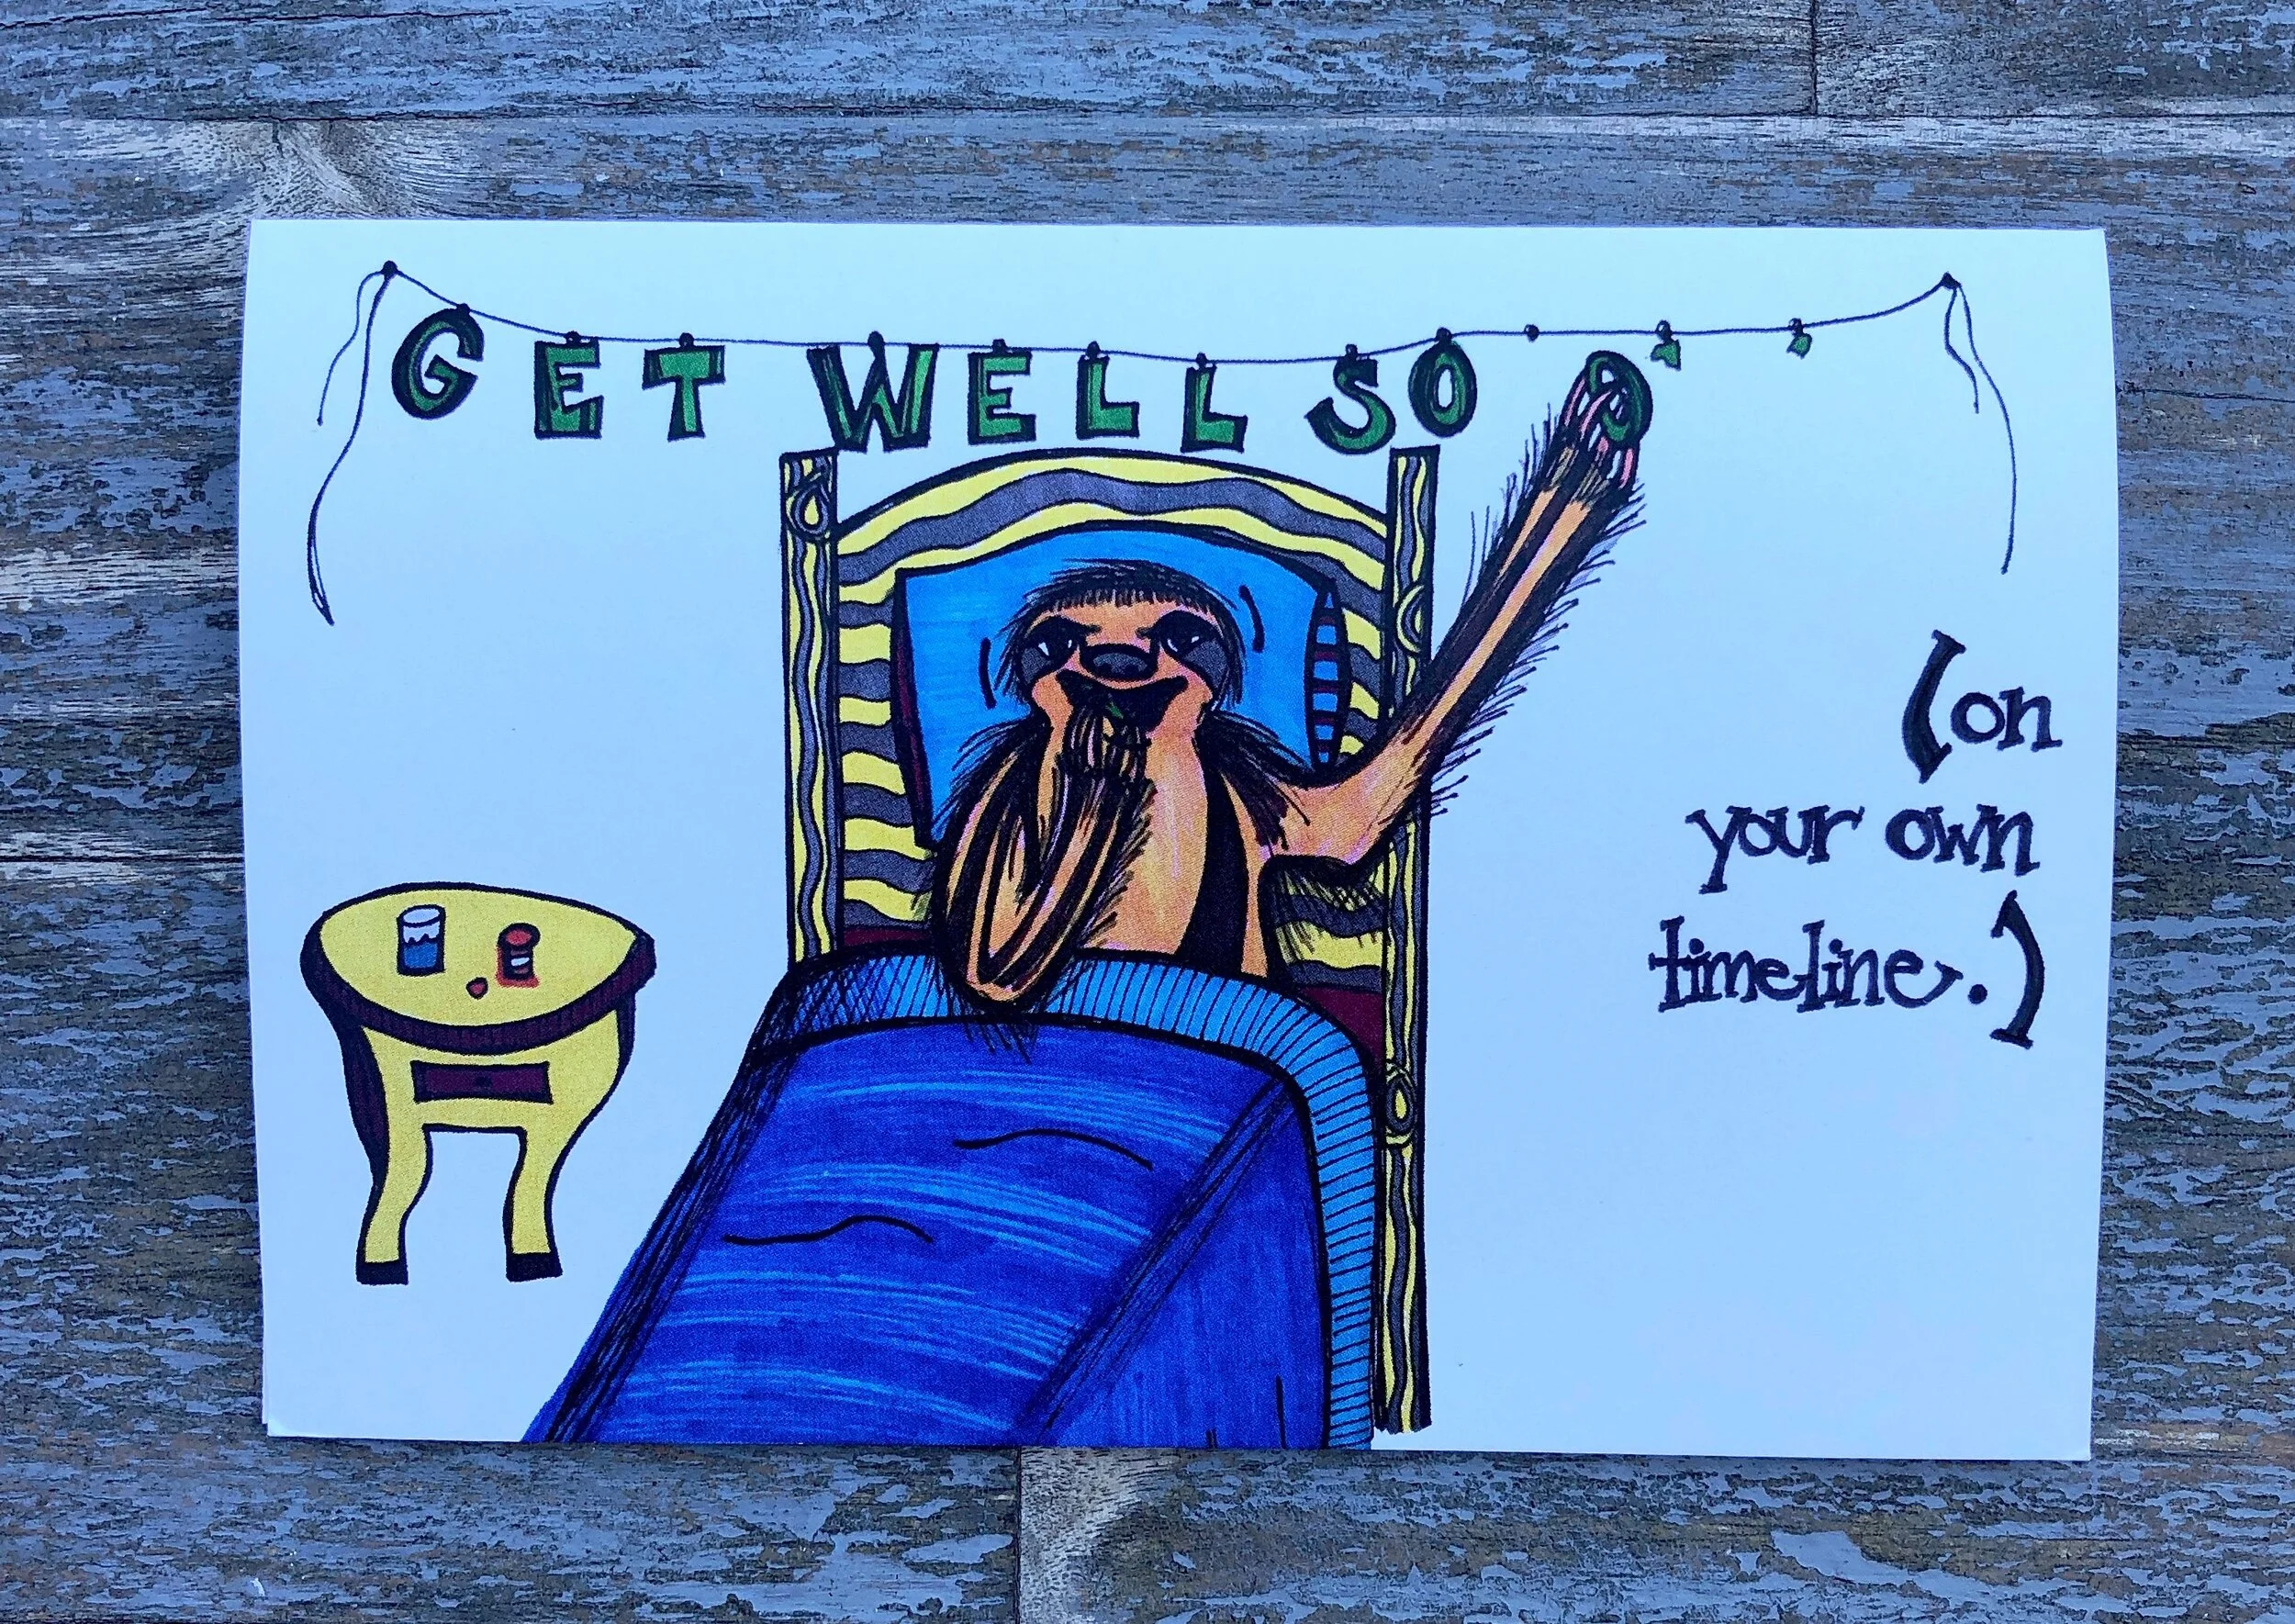 GET WELL SOO
(on
your own
timeline.)